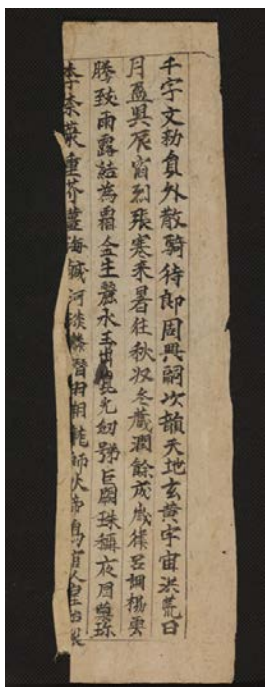 千字文勑員外散騎待郎周興嗣次韻天地玄黃宇宙洪荒日
月盈昃辰宿烈張寒来暑往秋收冬藏潤餘成歲律呂調楊雲
騰致雨露結為霜金生麗水玉出崑光劒號巨闕珠稱夜光菓珎
李柰菜重芥薑海鹹河淡鱗潛羽翔龍師火帝鳥官人皇始